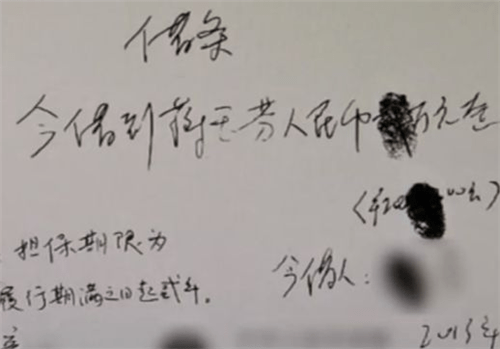 借条
今借到蒋玉芬人民币万元整
担保期限为
履行期满之日起贰年。
今借人:
2013年